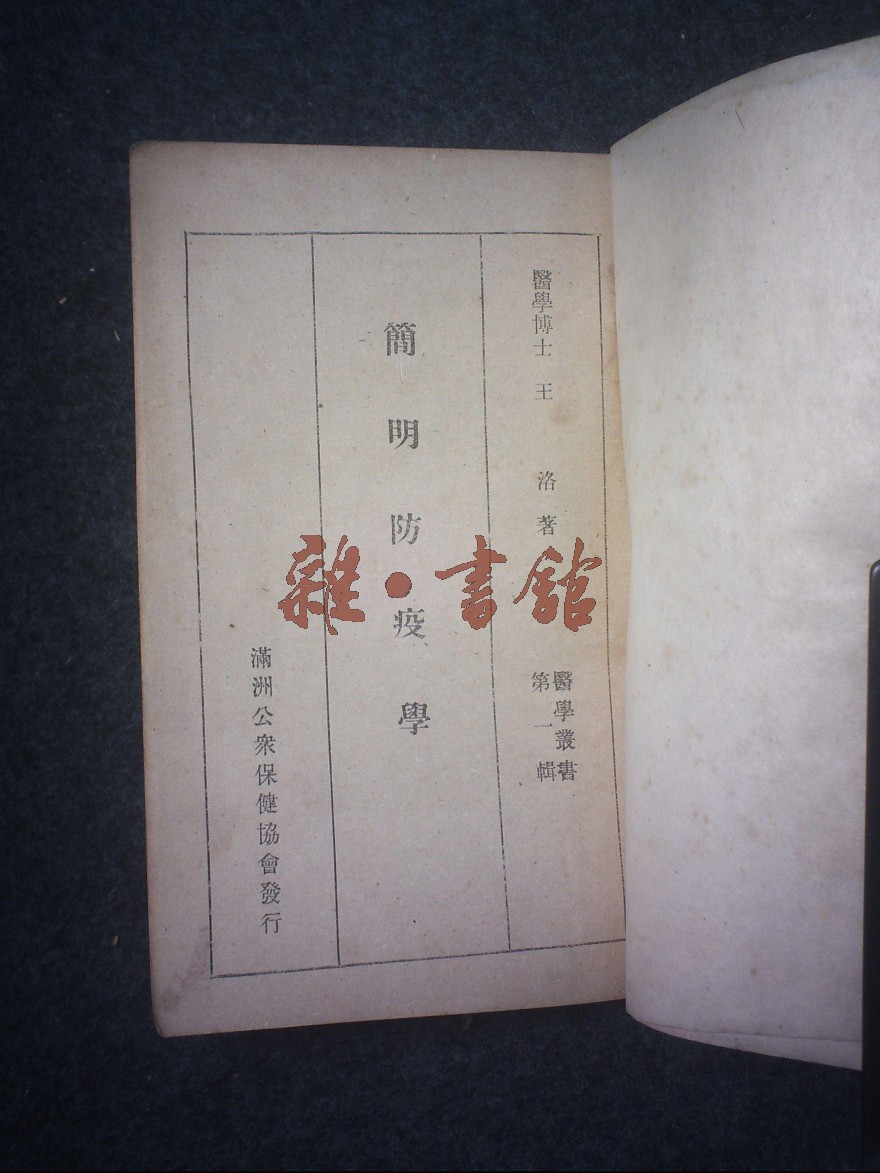 醫學博士 王 洛 著
醫學叢書
第一輯
簡明防疫學
滿洲公衆保健協會發行
雜·書館